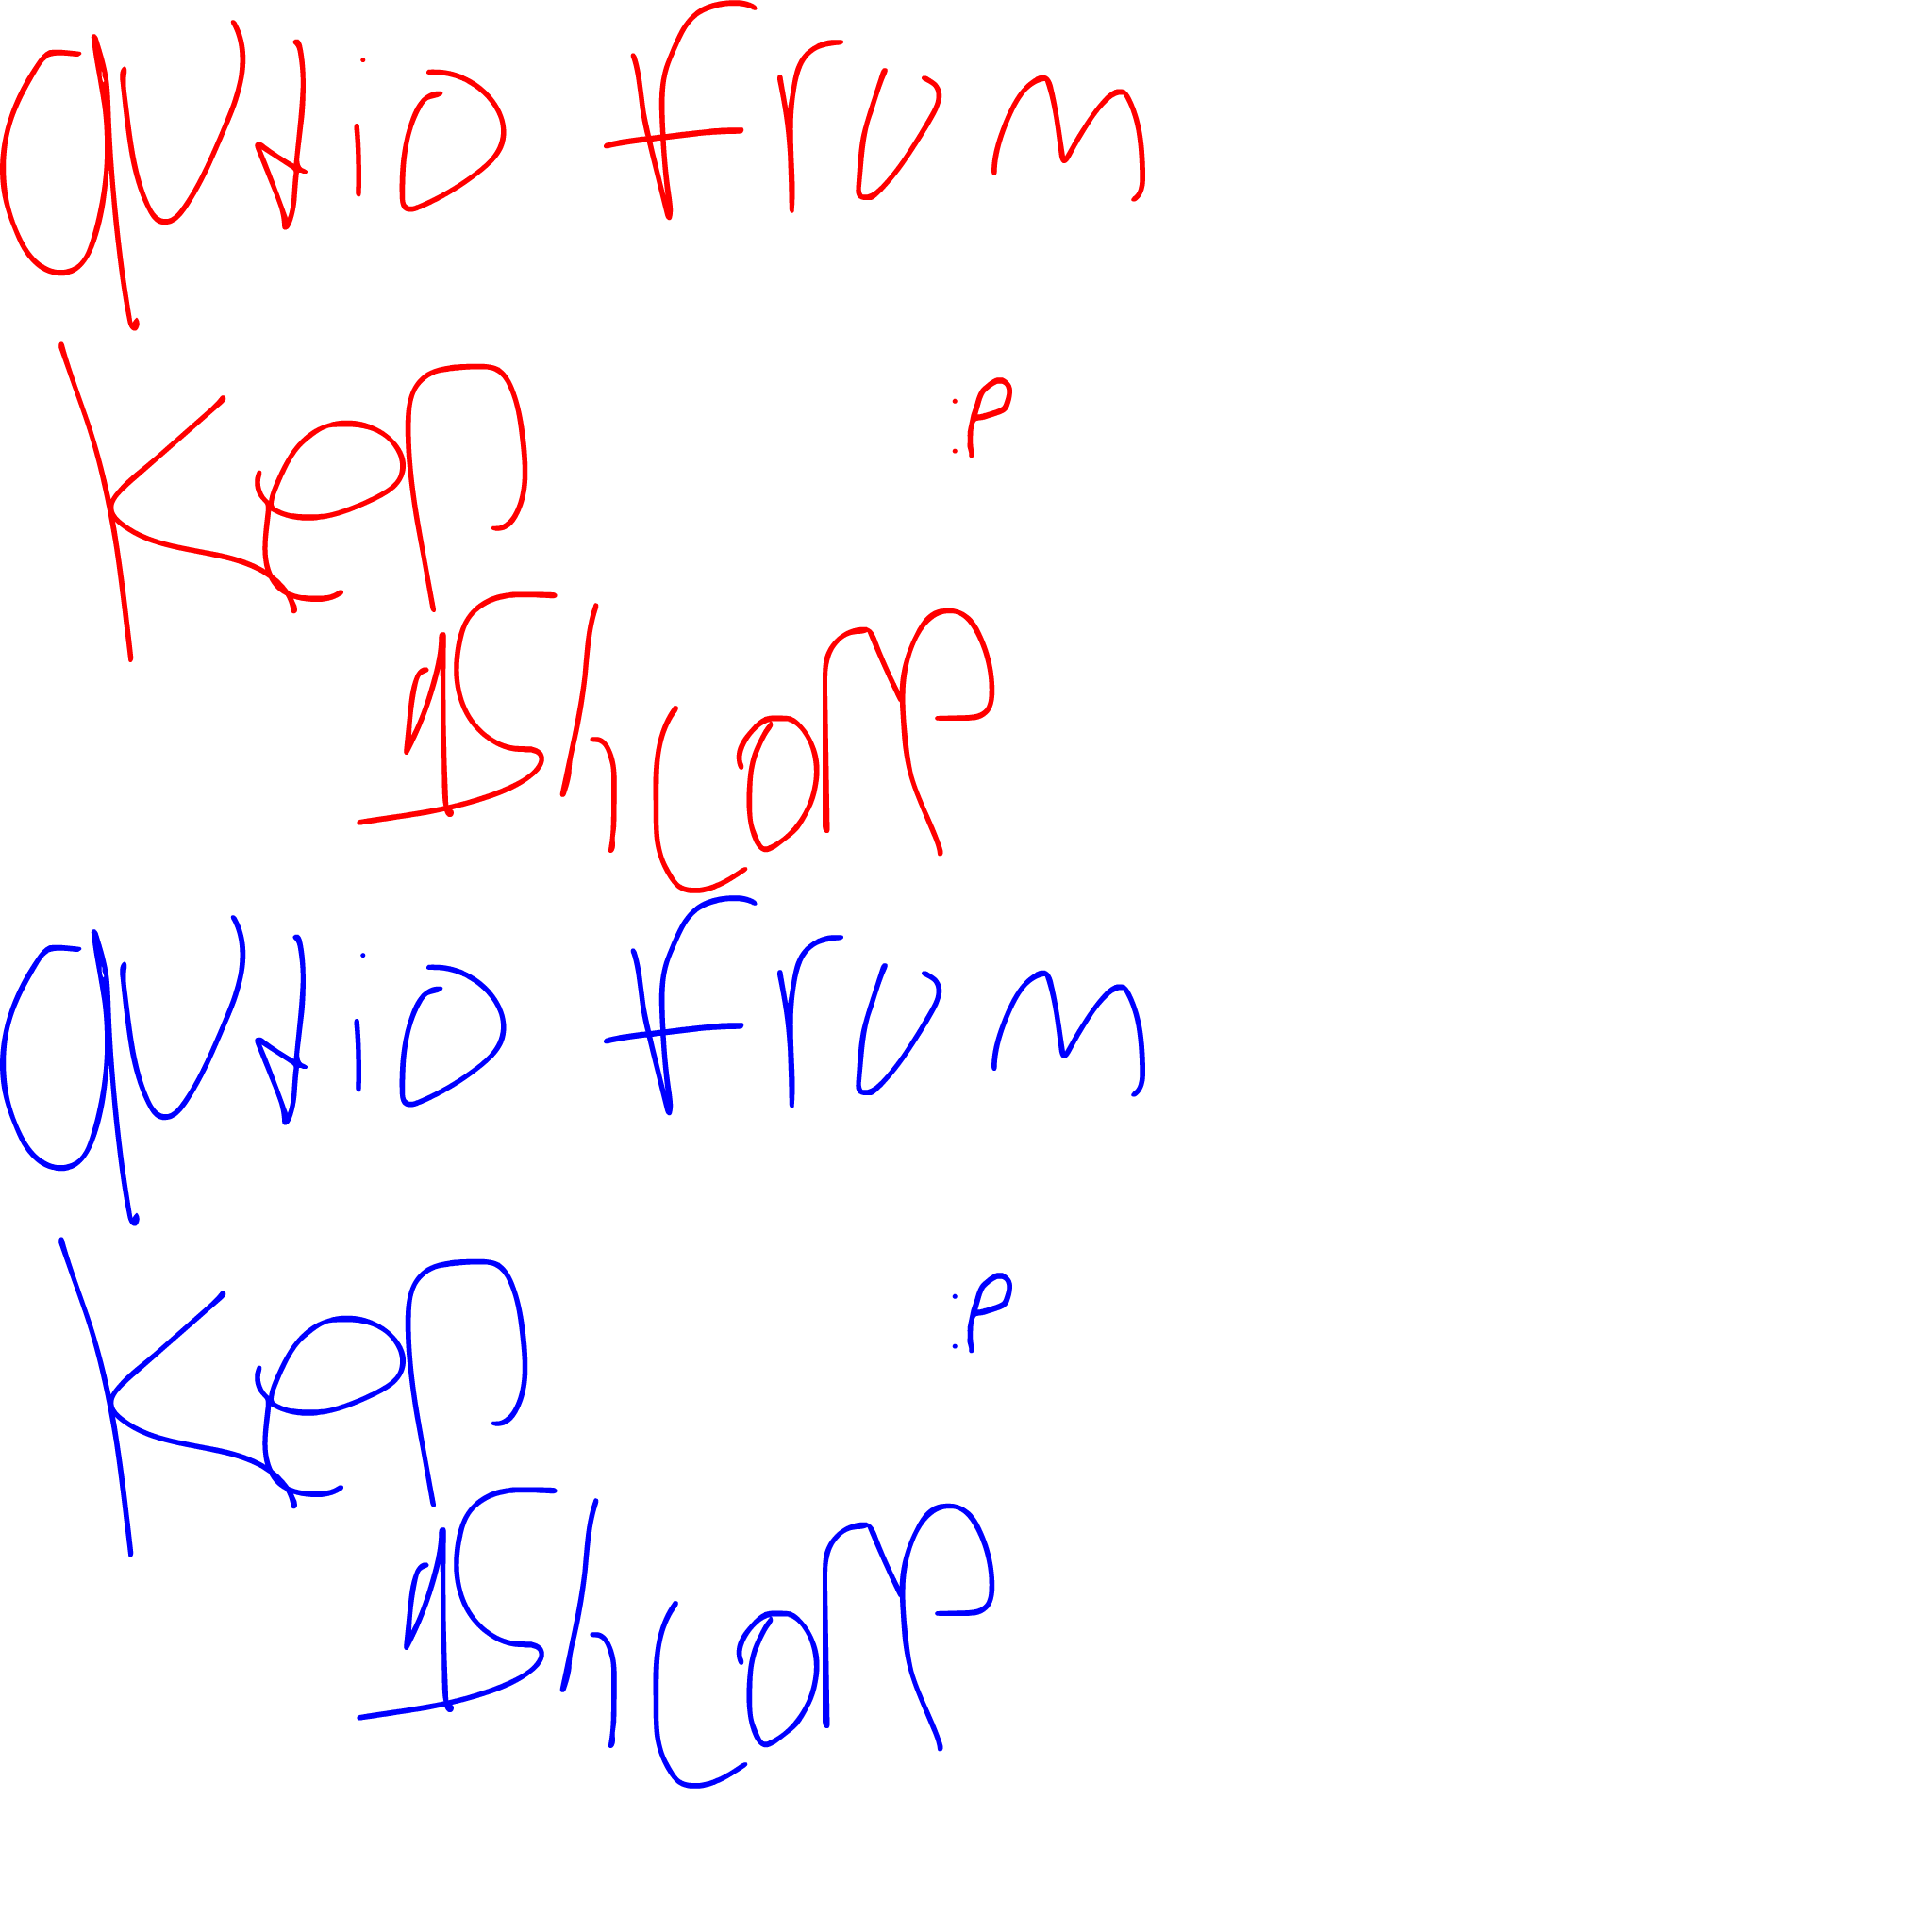 audio from
Kep :P
ashcorp
audio from
Kep :P
ashcorp